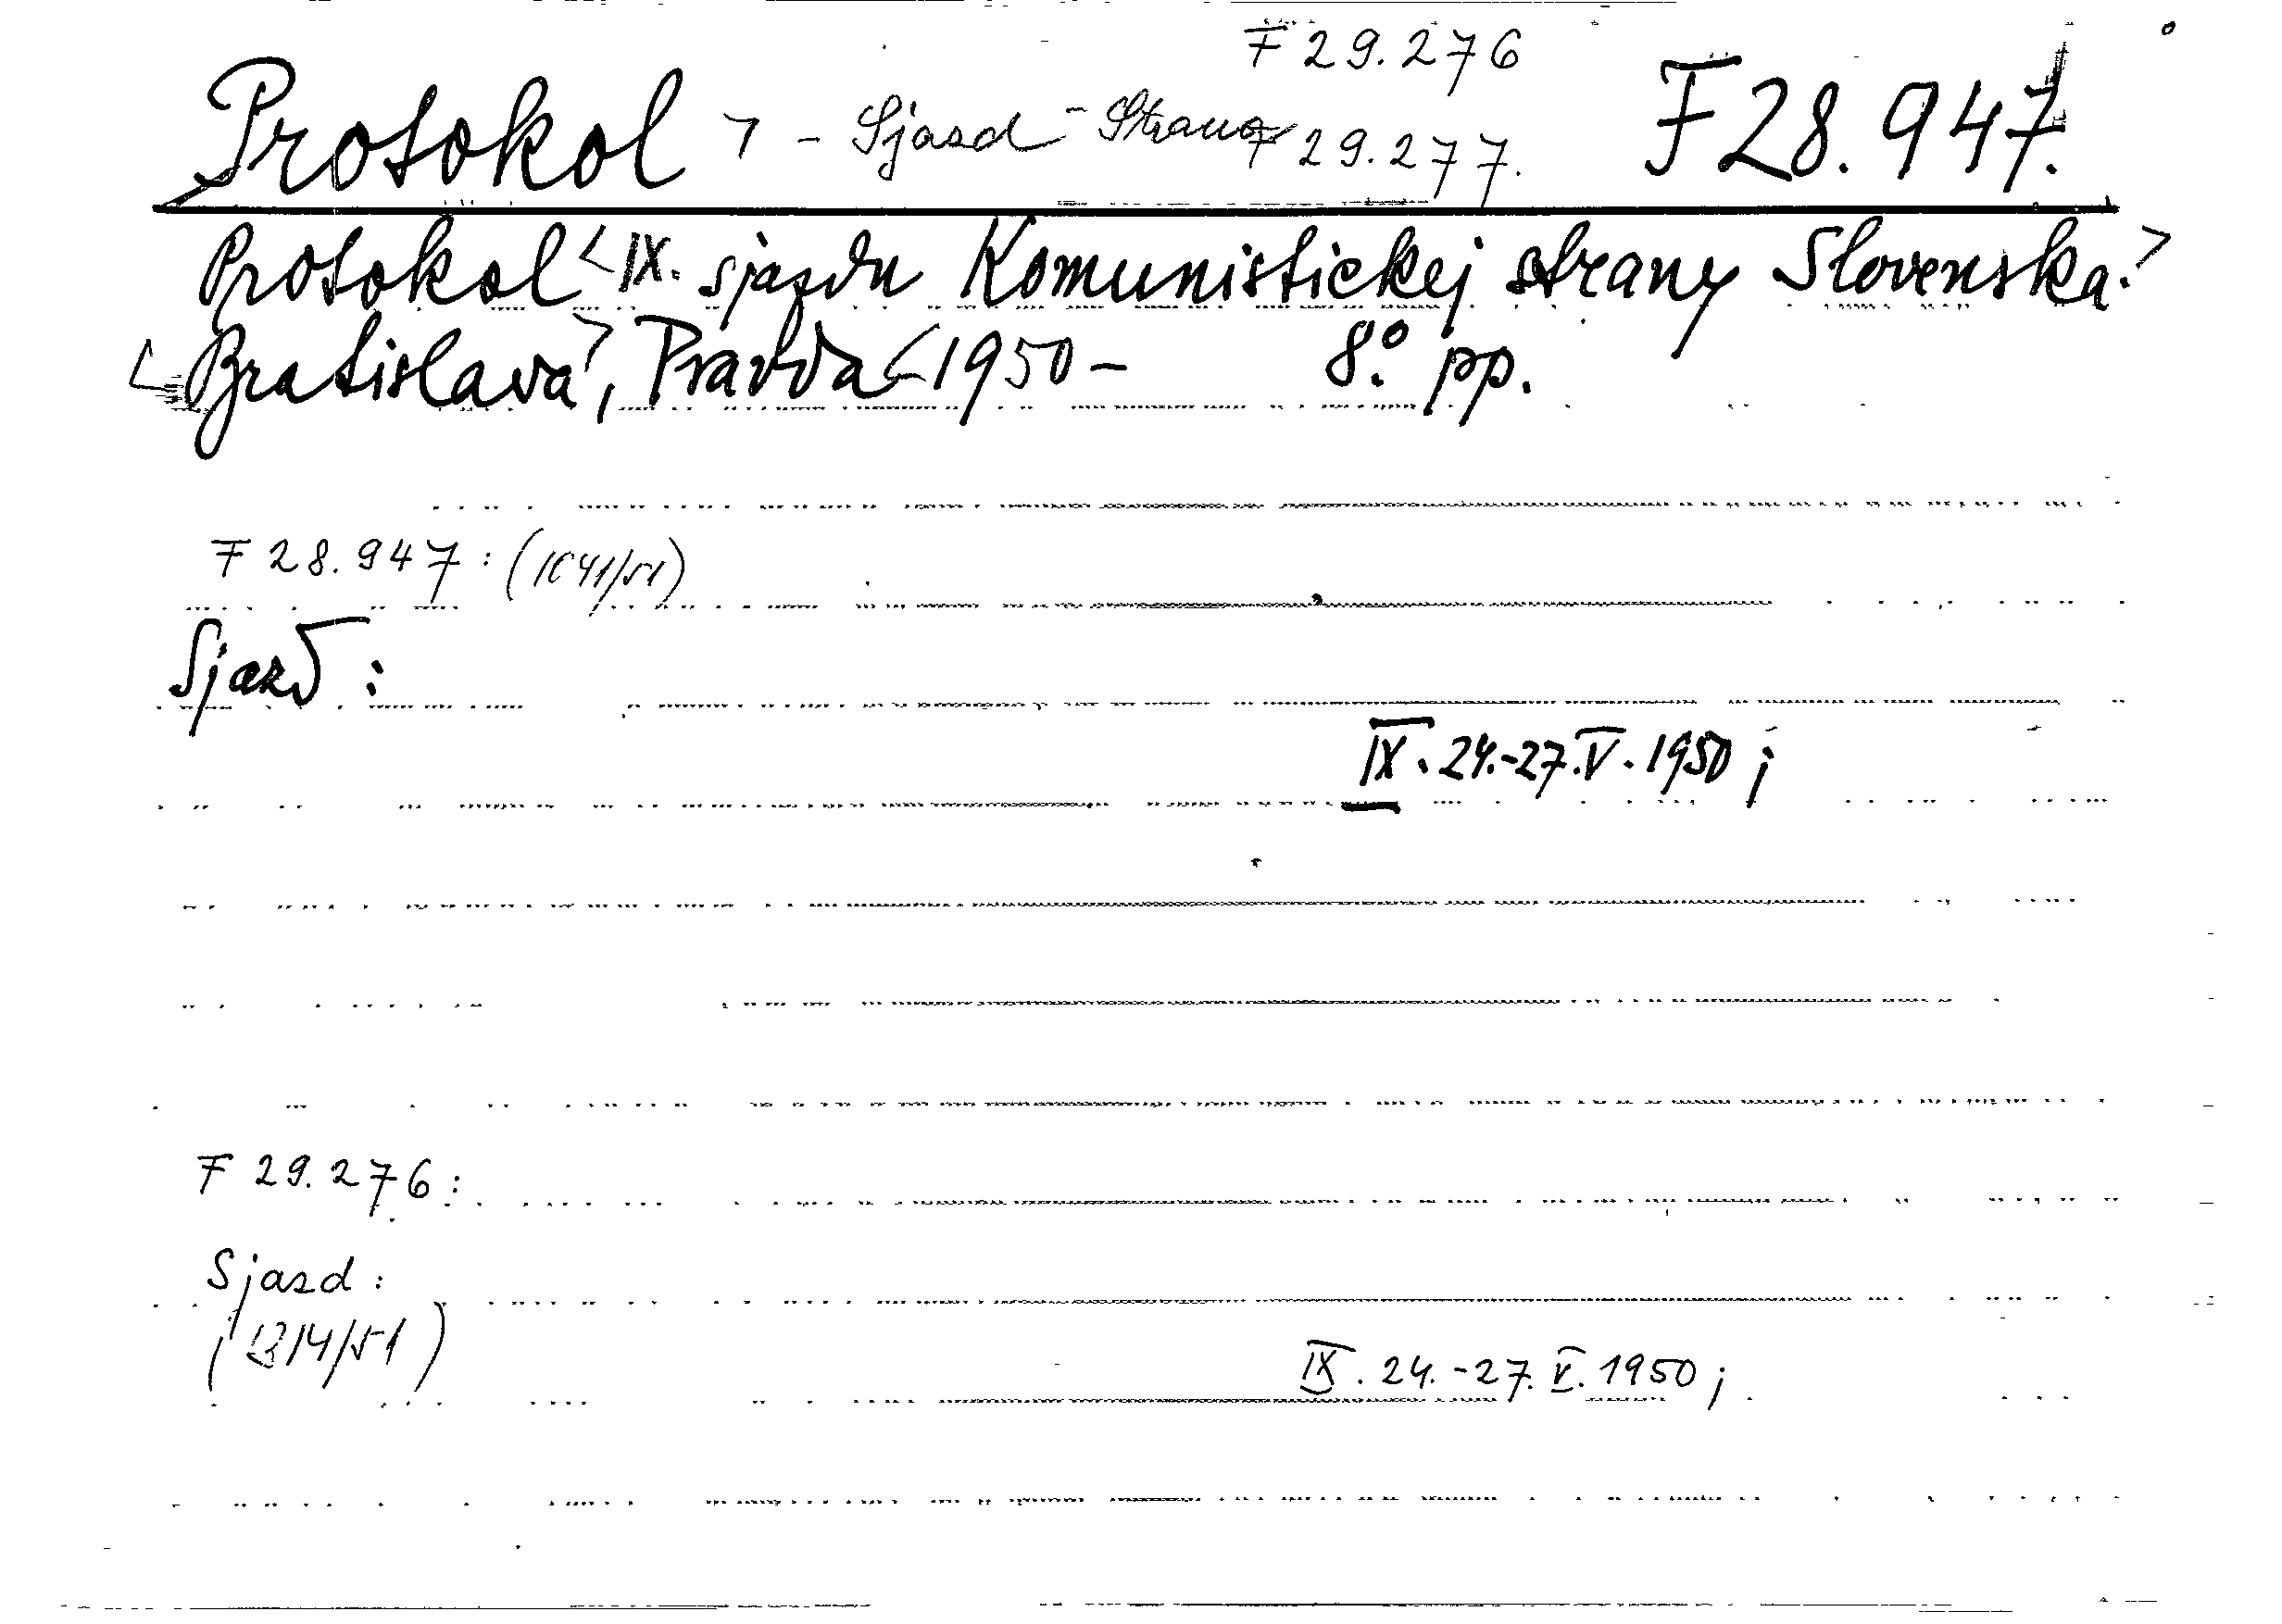 F 29.276
Protokol > - Sjazd - Strana F 29.277. F 28.947.
Protokol <IX. sjazdu Komunistickej strany Slovenska.>
<Bratislava>, Pravda <1950- 8º. pp.
F 28.947: (1641/51)
Sjazd:
IX. 24.-27.V.1950;
F 29.276:
Sjazd:
(1314/51)
IX. 24.-27.V.1950;